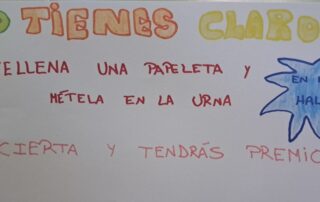 O TIENES CLARO
RELLENA UNA PAPELETA Y
MÉTELA EN LA URNA
EN
HAL
CIERTA Y TENDRÁS PREMIO